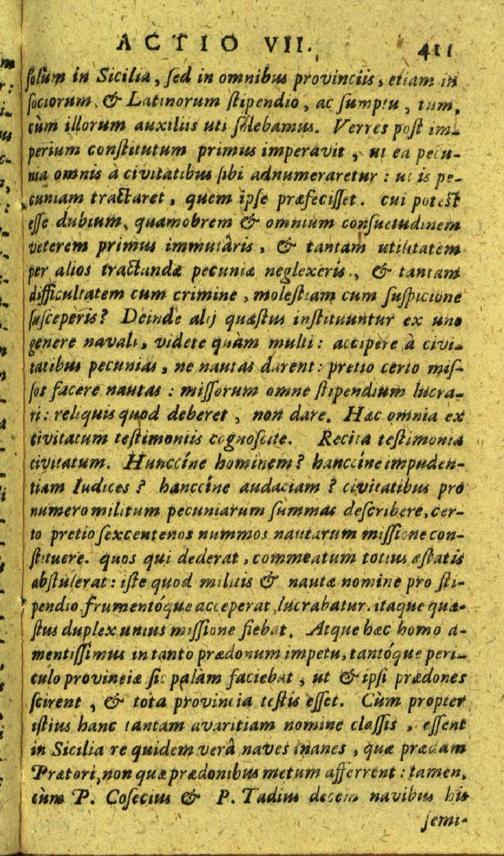 ACTIO VII. 411
solùm in Sicilia, sed in omnibus provinciis, etiam in
sociorum, & Latinorum stipendio, ac sumptu, tum,
cùm illorum auxiliis uti solebamus. Verres post im-
perium constitutum primus imperavit, ut ea pecu-
nia omnis à civitatibus sibi adnumeraretur: ut is pe-
cuniam tractaret, quem ipse præfecisset. cui potest
esse dubium, quamobrem & omnium consuetudinem
veterem primus immutâris, & tantam utilitatem
per alios tractandæ pecuniæ neglexeris, & tantam
difficultatem cum crimine, molestiam cum suspicione
susceperis? Deinde alij quæstus instituuntur ex uno
genere navali, videte quam multi: accipere à civi-
tatibus pecunias, ne nautas darent: pretio certo mis-
sos facere nautas: missorum omne stipendium lucra-
ri: reliquis quod deberet, non dare. Hæc omnia ex
civitatum testimoniis cognoscite. Recita testimonia
civitatum. Hunccíne hominem? hanccíne impuden-
tiam Iudices? hanccíne audaciam? civitatibus pro
numero militum pecuniarum summas describere, cer-
to pretio sexcentenos nummos nautarum missione con-
stituere. quos qui dederat, commeatum totius æstatis
abstulerat: iste quod militis & nautæ nomine pro sti-
pendio, frumentóque acceperat, lucrabatur. itaque quæ-
stus duplex unius missione fiebat. Atque hæc homo a-
mentissimus in tanto prædonum impetu, tantóque peri-
culo provinciæ sic palam faciebat, ut & ipsi prædones
scirent, & tota provincia testis esset. Cùm propter
istius hanc tantam avaritiam nomine classis, essent
in Sicilia re quidem verâ naves inanes, quæ prædam
Prætori, non quæ prædonibus metum afferrent: tamen,
cùm P. Cosecius & P. Tadius decem navibus his
jemi-